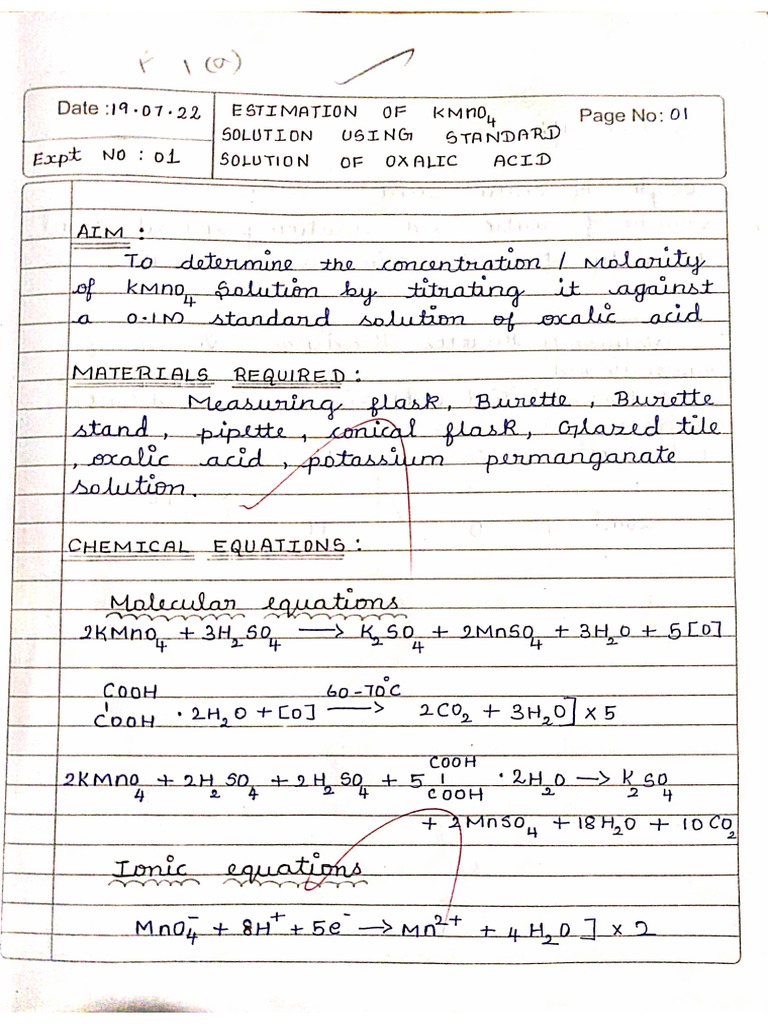 1 (a)
Date : 19.07.22
Expt NO : 01
ESTIMATION OF KMnO₄
SOLUTION USING STANDARD
SOLUTION OF OXALIC ACID
Page No: 01
AIM :
To determine the concentration / Molarity
of KMnO₄ Solution by titrating it against
a 0.1M standard solution of oxalic acid
MATERIALS REQUIRED :
Measuring flask, Burette, Burette
stand, pipette, conical flask, Glazed tile
, oxalic acid, potassium permanganate
solution.
CHEMICAL EQUATIONS :
Molecular equations
2KMnO₄ + 3H₂SO₄ ⟶ K₂SO₄ + 2MnSO₄ + 3H₂O + 5[O]
COOH 60-70°C
COOH · 2H₂O + [O] ⟶ 2CO₂ + 3H₂O] x 5
COOH
2KMnO₄ + 2H₂SO₄ + 2H₂SO₄ + 5 · 2H₂O → K₂SO₄
COOH
+ 2MnSO₄ + 18H₂O + 10CO₂
Ionic equations
MnO₄⁻ + 8H⁺ + 5e⁻ → Mn²⁺ + 4H₂O ] x 2